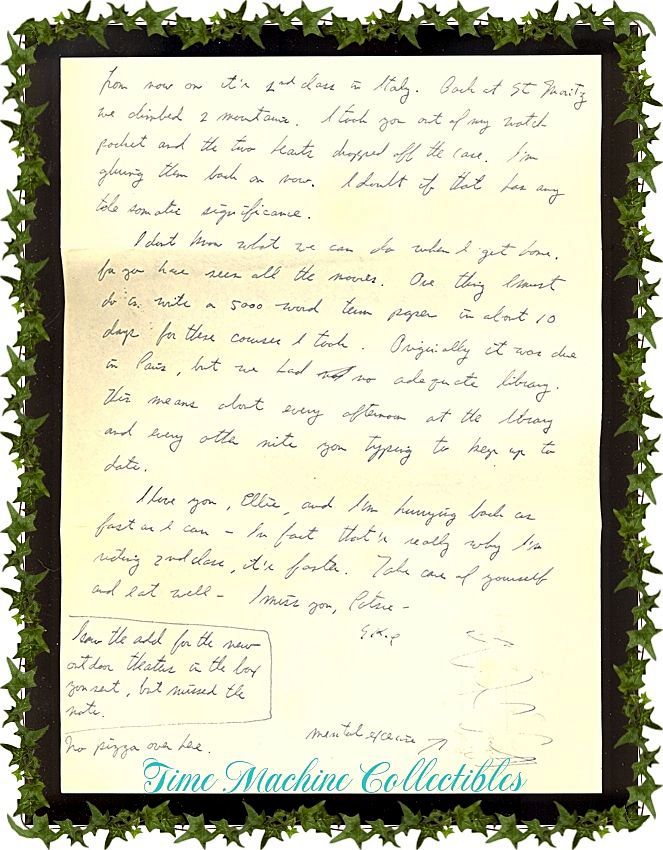 from now on it's 2nd class in Italy. Back at St Moritz
we climbed 2 mountains. I took you out of my watch
pocket and the two hearts dropped off the case. I'm
gluing them back on now. I doubt if that has any
somatic significance.
I don't know what we can do when I get home,
for you have seen all the movies. One thing I must
do is write a 5000 word term paper in about 10
days for these courses I took. Originally it was due
in Paris, but we had no adequate library.
This means about every afternoon at the library
and every other nite you typing to keep up to
date.
I love you, Ellie, and I'm hurrying back as
fast as I can - In fact that's really why I'm
riding 2nd class, it's faster. Take care of yourself
and eat well - I miss you,
I saw the add for the new
outdoor theater in the box
you sent, but missed the
note.
mental exercise
No pizza over here.
Time Machine Collectibles